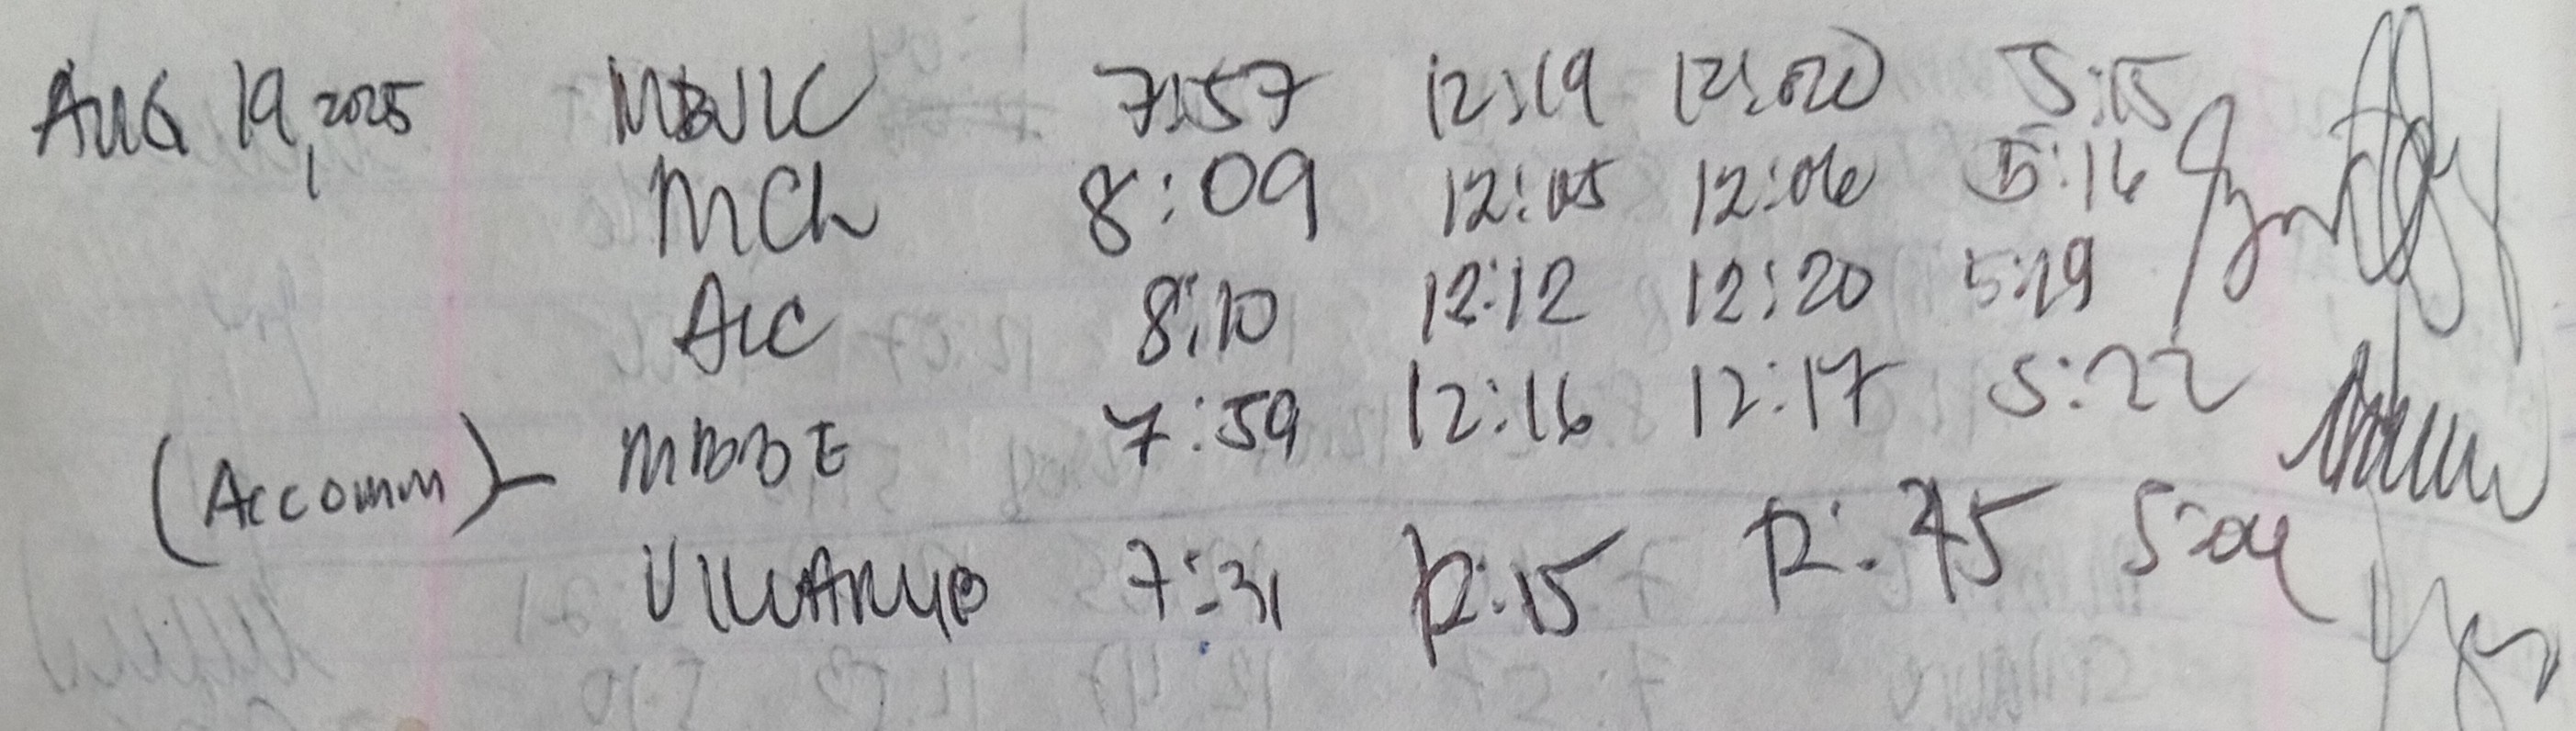 AUG 19, 2025 MBJLC 7:57 12:19 12:20 5:15
MCL 8:09 12:05 12:06 5:16
ALC 8:10 12:12 12:20 5:19
7:59 12:16 12:17 5:22
(Accomm)
7:31 12:15 12:45 5:04